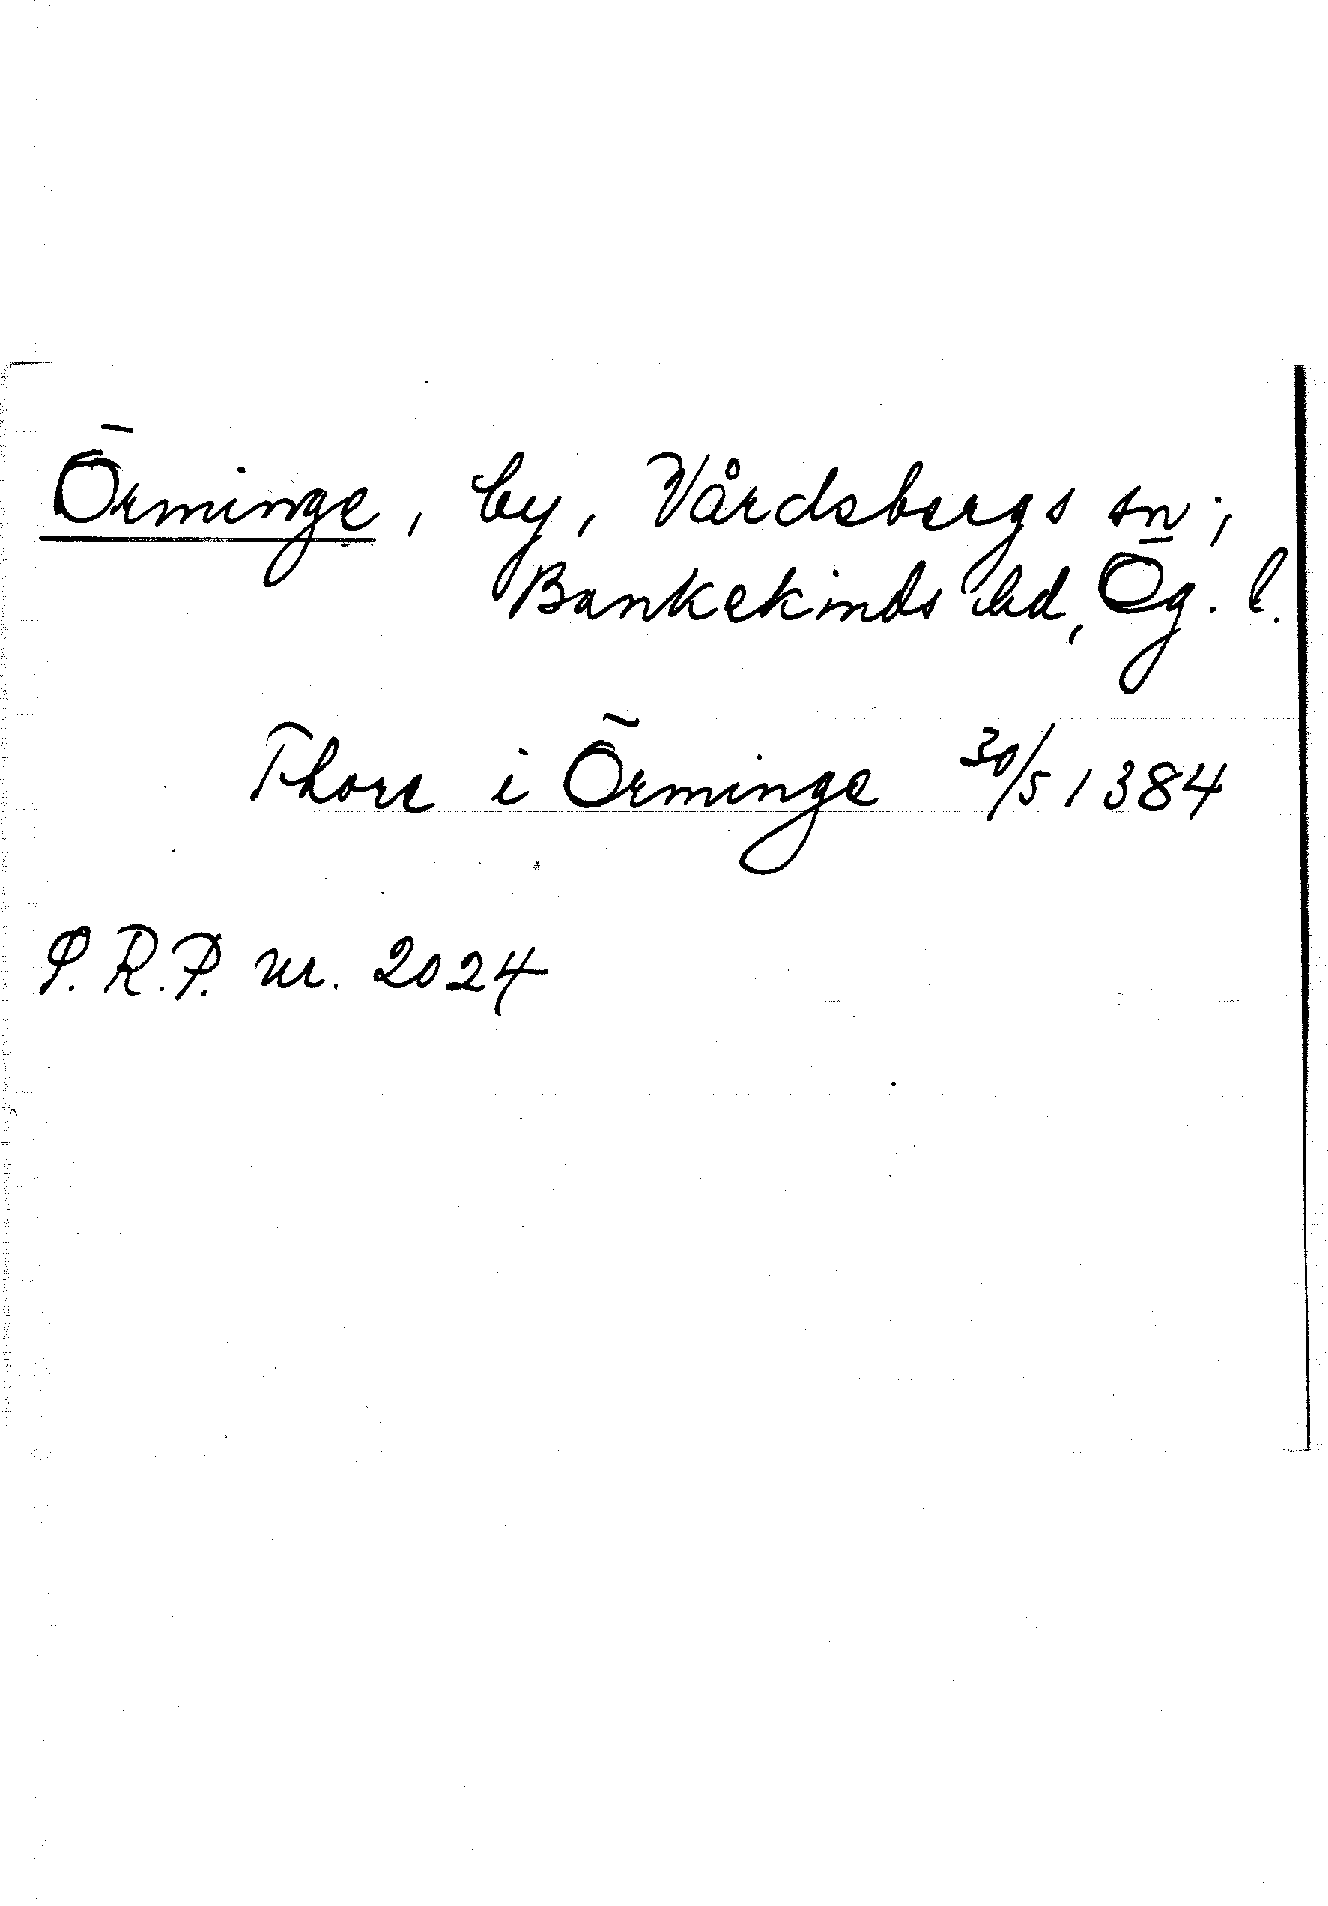 Örminge, by, Vårdsbergs sn;
Bankekinds hd, Ög. l.
Thore i Örminge 30/5 1384
S.R.P. nr. 2024